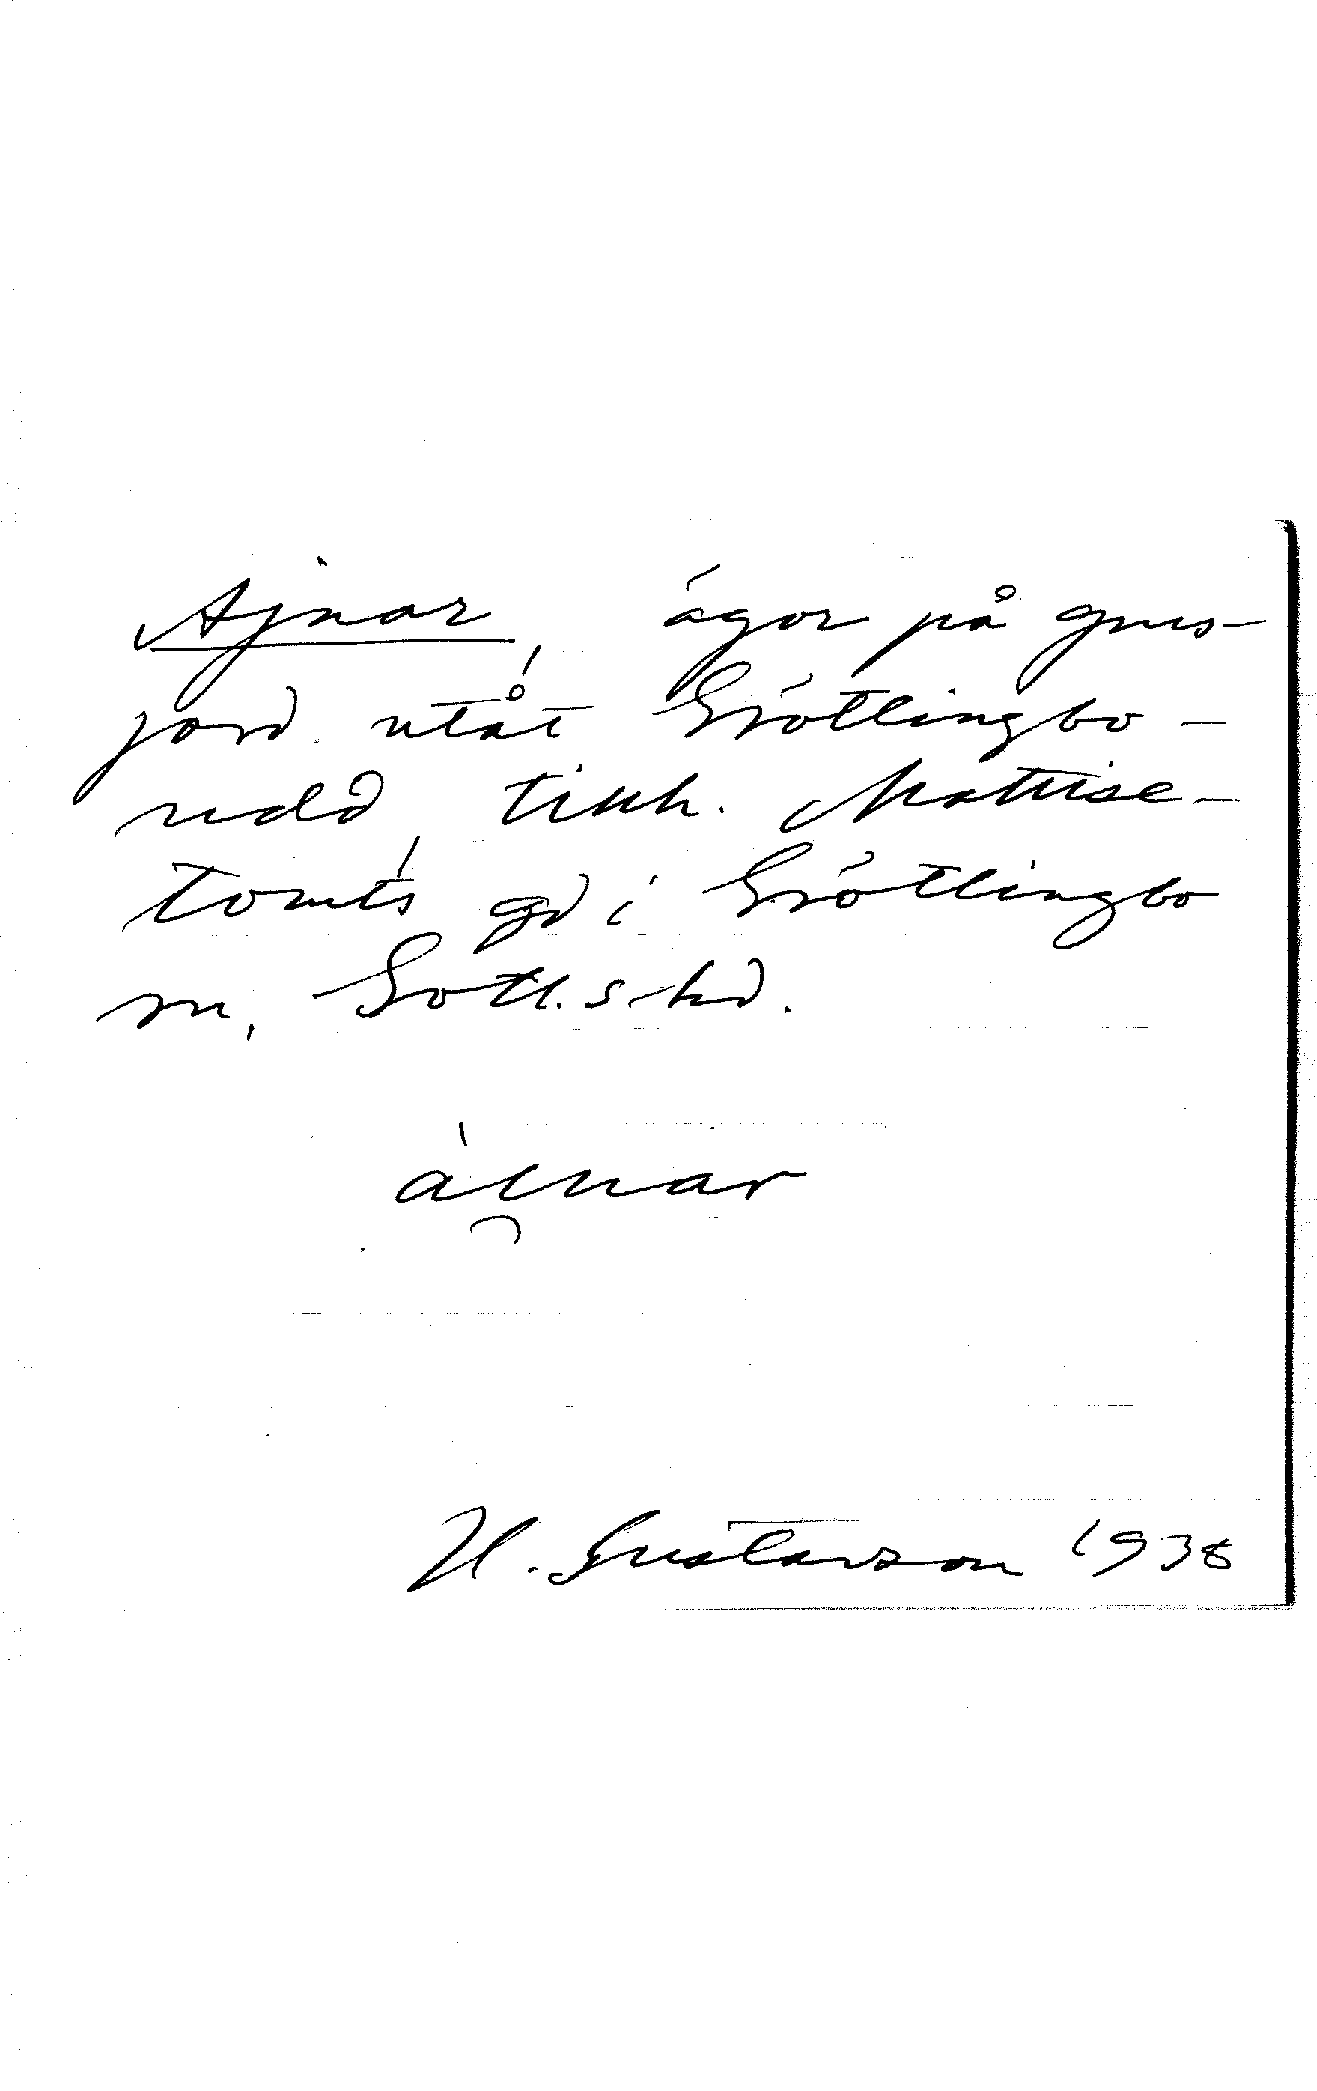 Ajnar, ägor på grus-
jord utåt Grötlingbo-
udd, tillh. Mattise-
tomt's gd i Grötlingbo
sn, Gotl. s hd.
ái̯nar
H. Gustavson 1938